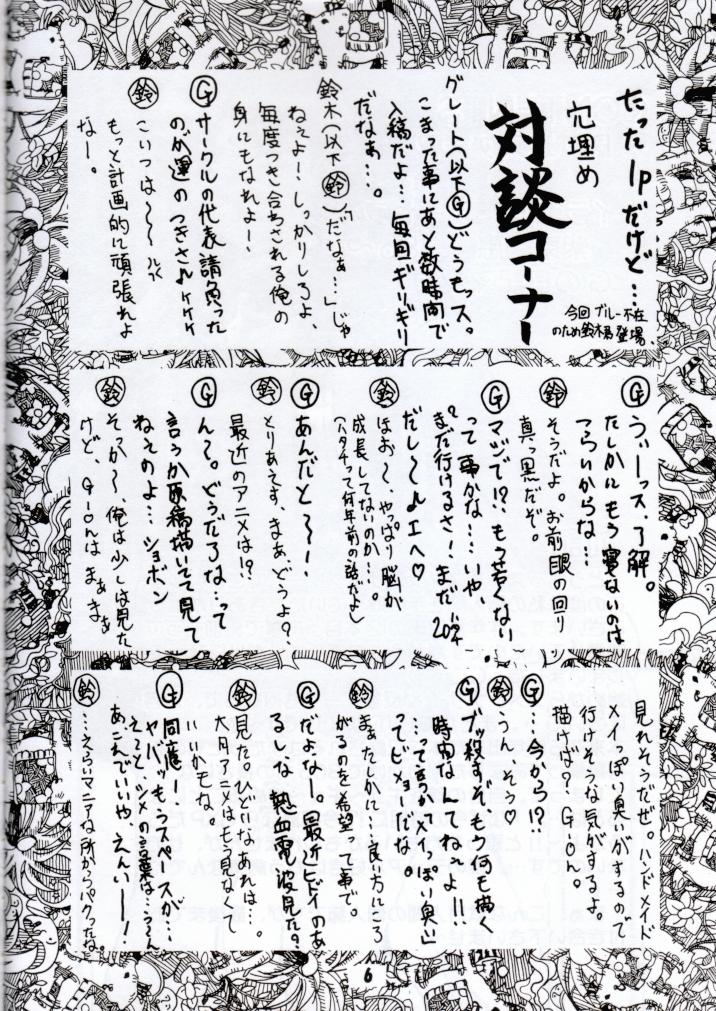 たった1Pだけど…
穴埋め
対談コーナー
今回ブルー不在
のため鈴木君登場、
グレート(以下Ⓖ)どうもッス。
こまった事にあと数時間で
入稿だよ…毎回ギリギリ
だなぁ…。
鈴木(以下㊥鈴)「だなぁ…」じゃ
ねぇよ!しっかりしろよ、
毎度つき合わされる俺の
身にもなれよー、
Ⓖ サークルの代表請負った
のが運のつきさ♪ケケケ
鈴 こいつは〜〜
もっと計画的に頑張れよ
なー。
Ⓖ うぃーっス、了解。
たしかにもう寝ないのは
つらいからな…
鈴 そうだよ。お前眼の回り
真っ黒だぞ。
Ⓖ マジで!?、もう若くない
って事かな……いや、
まだ行けるさ!まだ20才
だし〜♪エヘ♡
鈴 ほお〜、やっぱり脳が
成長してないのか…。
(ハタチって何年前の話だよ)
Ⓖ あんだと〜!
鈴 とりあえず、まあどうよ?
最近のアニメは!?
Ⓖ ん〜。どうだろな…って
言うか原稿描いてて見て
ねぇのよ…ショボン
鈴 そっか〜、俺は少しは見た
けど、G-onんはまぁまぁ
見れそうだぜ。ハンドメイド
メイっぽい臭いがするので
行けそうな気がするよ。
描けば?G-on。
Ⓖ …今から?
鈴 うん、そう♡
Ⓖ ブッ殺すぞ、そも何も描く
時間なんてねーよ!!
…って言うか“メイっぽい臭い”
ってビミョーだな。
鈴 まぁたしかに…良い方にころ
がるのを希望って事で。
Ⓖ だよなー。(最近ヒドイのあ
るし)な、熱血電波見た?
鈴 見た、ひどいなあれは…。
大月アニメはもう見なくて
いいかもな。
Ⓖ 同感ー!
ヤバッもうスペースが…
えーと、シメの言葉は…〜〜
あこんでいいや、えんいー!
鈴 …えらいマニアな所からパクったね。
6